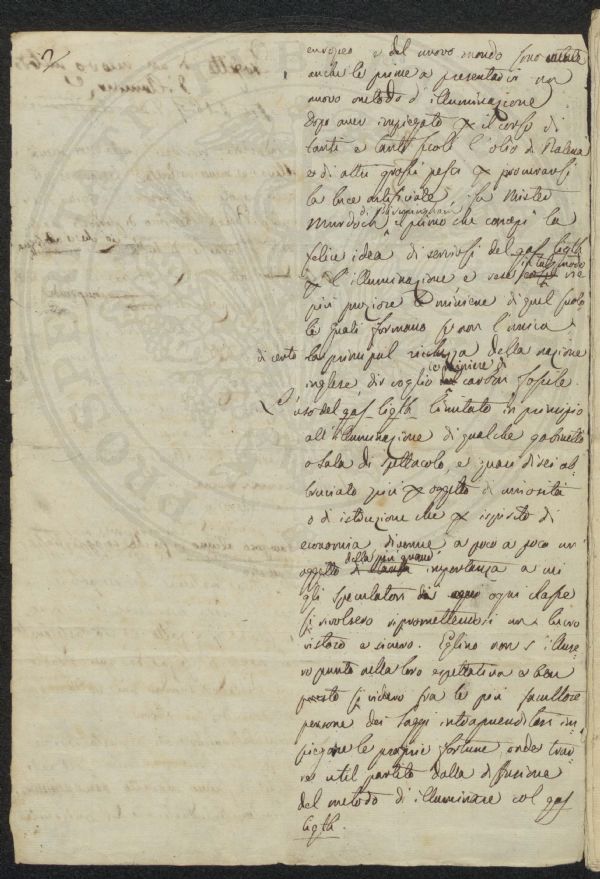 2
europeo e del nuovo mondo sono
anche le prime a presentarsi un
nuovo metodo d'illuminazione
Dopo aver impiegato x il corso di
tanti e tanti secoli l'olio di Balena
e di altri grossi pesci x procurarsi
la luce artificiale, fu Mister
di Birmingham
Murdoch il primo che concepì la
felice idea di servirsi del gas ligth
in tal modo
x l'illuminazione e rese vie
più preziose le miniere di quel suolo
le quali formano se non l'unica
di certo la principal ricchezza della nazione
miniere di
inglese dir voglio carbon fossile.
L'uso del gas ligth limitato in principio
all'illuminazione di qualche gabinetto
o Sala di Spettacolo, e quasi direi ab
bracciato più x oggetto di curiosità
o di istruzione che x ispirito di
economia divenne a poco a poco un
della più grande
oggetto importanza a cui
gli speculatori di ogni classe
si rivolsero ripromettendosi un lucro
vistoso e sicuro. Eglino non s'illuse=
ro punto nella loro aspettativa e ben
presto si videro fra le più facoltose
persone dei saggi intraprenditori im=
piegare le proprie fortune, onde trar=
re util partito dalla diffusione
del metodo di illuminare col gas
ligth.